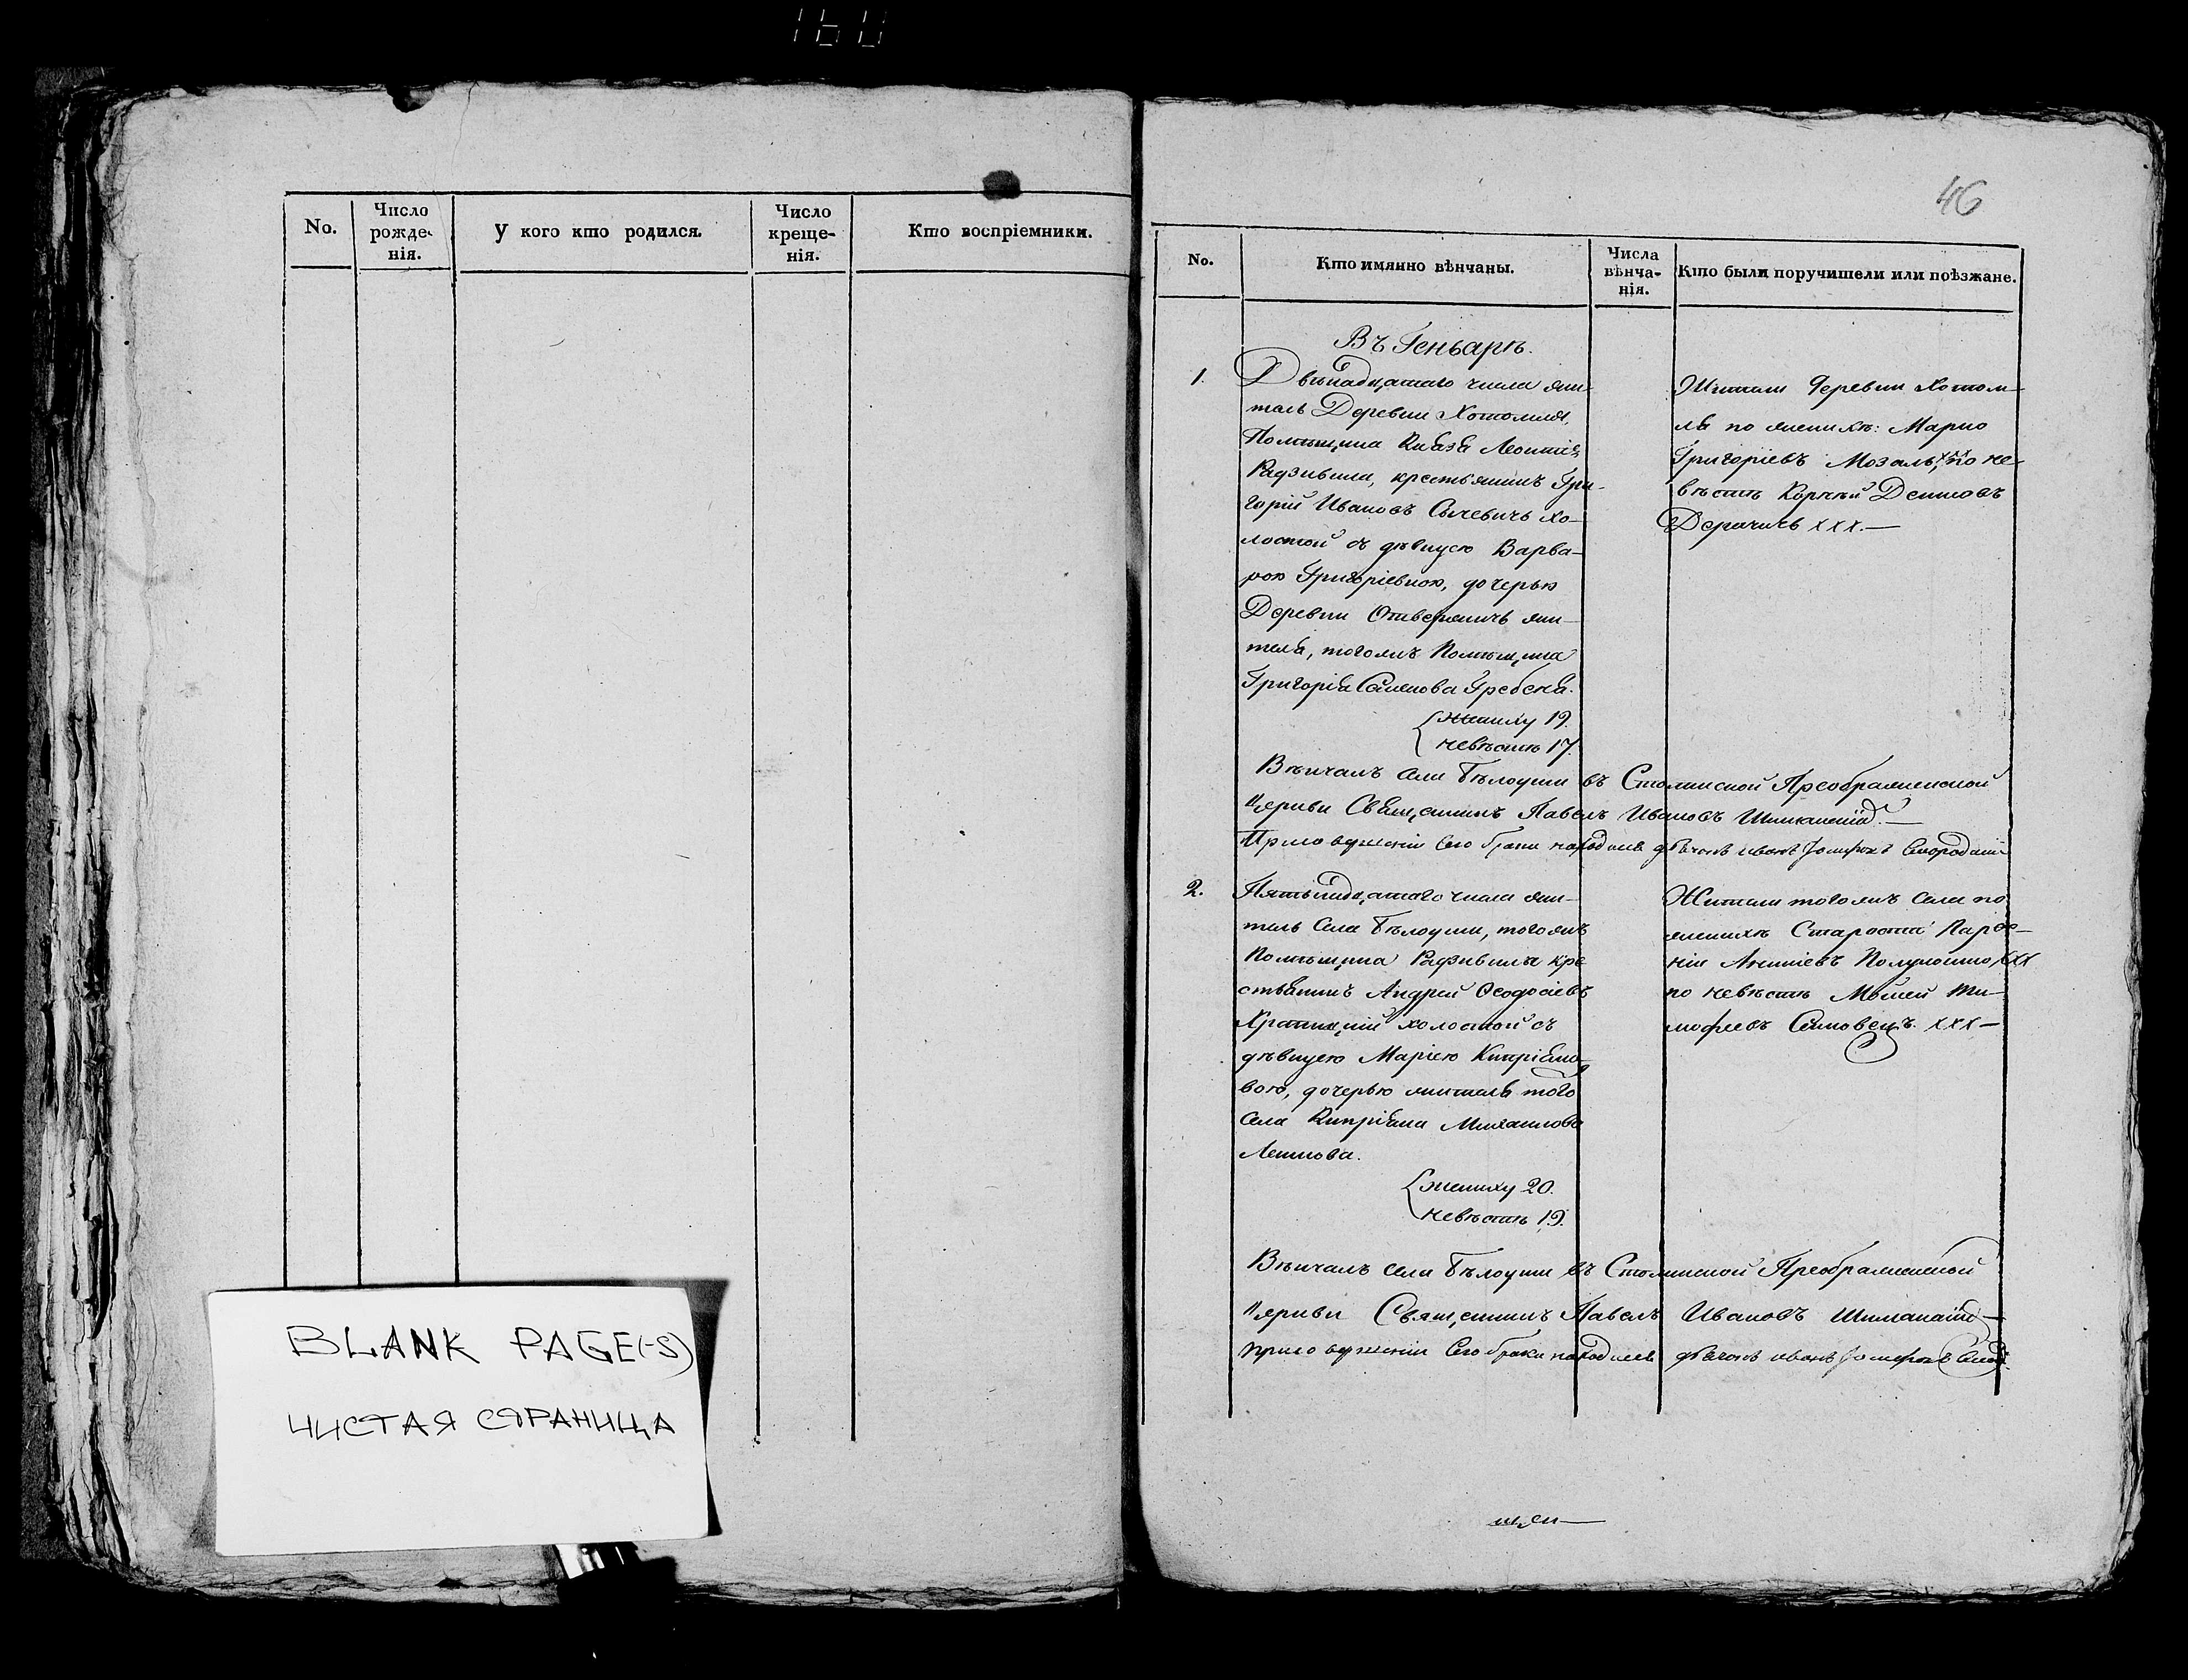 160
No.
Число рожде- нія.
У кого кто родился.
Число креще- нія.
Кто воспріемники.
BLANK PAGE(-S)
ЧИСТАЯ СТРАНИЦА
46
No.
Кто имянно вѣнчаны.
Числа вѣнча- нія.
Кто были поручители или поѣзжане.
Въ Геньварѣ.
1.
Двѣнадцатаго числа жи-
тель Деревни Хотомля,
Помѣщика Князя Леонтія
Радзивила, крестьянинъ Гри-
горій Ивановъ Сычевичь хо-
лостой съ дѣвицею Варва-
рою Григоріевною, дочерью
Деревни Отвержичь жи-
теля, тогожъ Помѣщика
Григорія Семенова Гребеня.
жениху 19.
невѣстѣ 17.
Жители деревни Хотом-
ля по женихѣ: Марко
Григоріевъ Мозоль, xxx по не-
вѣстѣ Корнѣй Демковъ
xxx.—
Вѣнчалъ села Бѣлоуши въ Столинской Преображенской
Церкви Священникъ Павелъ Ивановъ
При совершеніи Сего брака находился дьячокъ
2.
Пятьнадцатаго числа жи-
тель Села Бѣлоуши, тогожъ
Помѣщика Радзивила кре
стьянинъ Андрей Ѳеодосіевъ
холостой съ
дѣвицею Маріею Кипріяно-
вою, дочерью жителя того
села Кипріяна Михаилова
Лешкова.
жениху 20.
невѣстѣ 19.
Жители тогожъ Села по
женихѣ Староста Парфе-
ній xxx
по невѣстѣ Мойсей Ти-
мофеевъ xxx—
Вѣнчалъ села Бѣлоуши въ Столинской Преображенской
Церкви Священникъ Павелъ Ивановъ
При совершеніи Сего брака находился дьячокъ